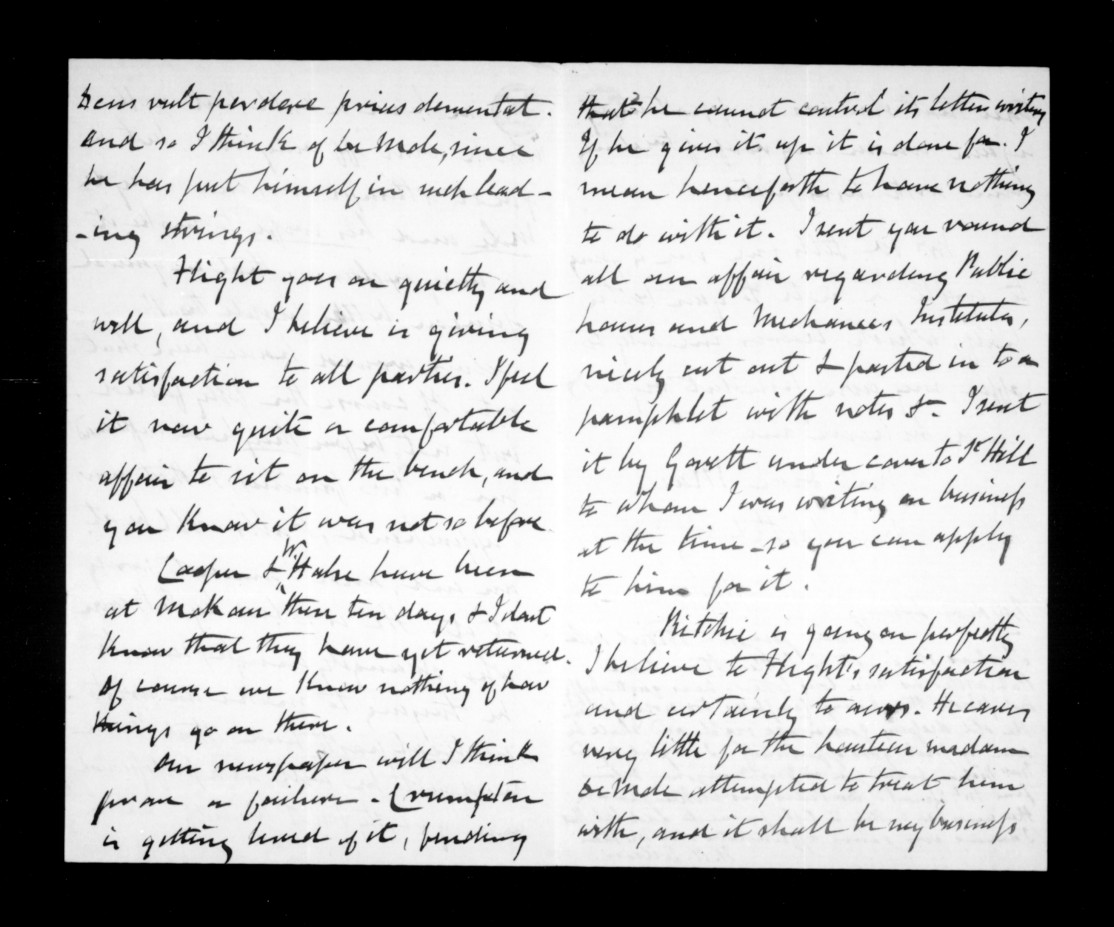 Deus vult perdere prius dementat.
and so I think of
he has put himself in such lead-
-ing strings.
Flight goes on quietly and
well, and I believe is giving
satisfaction to all parties. I feel
it now quite a comfortable
affair to sit on the bench, and
you know it was not so before.
Cooper & Wm Halse have been
at Mokau these ten days & I dont
know that they have yet returned.
Of course we know nothing of how
things go on there.
Our newspaper will I think
prove a failure. Crompton
is getting tired of it, finding
that he cannot control its letter writing
If he gives it up it is done for. I
mean henceforth to have nothing
to do with it. I sent you round
all our affair regarding Public
houses and Mechanics Institutes,
nicely cut out & pasted in to a
pamphlet with notes &. I sent
it by Govett under cover to Dr Hill
to whom I was writing on business
at the time - so you can apply
to him for it.
Ritchie is going on perfectly
I believe to Flight's satisfaction
and certainly to ours. He cares
very little for the hauteur madam
attempted to treat him
with, and it shall be my business